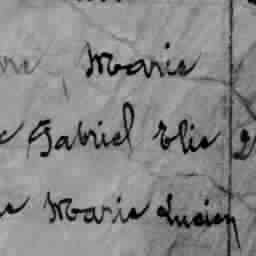 Marie
Gabriel Elie 2
Marie Lucien